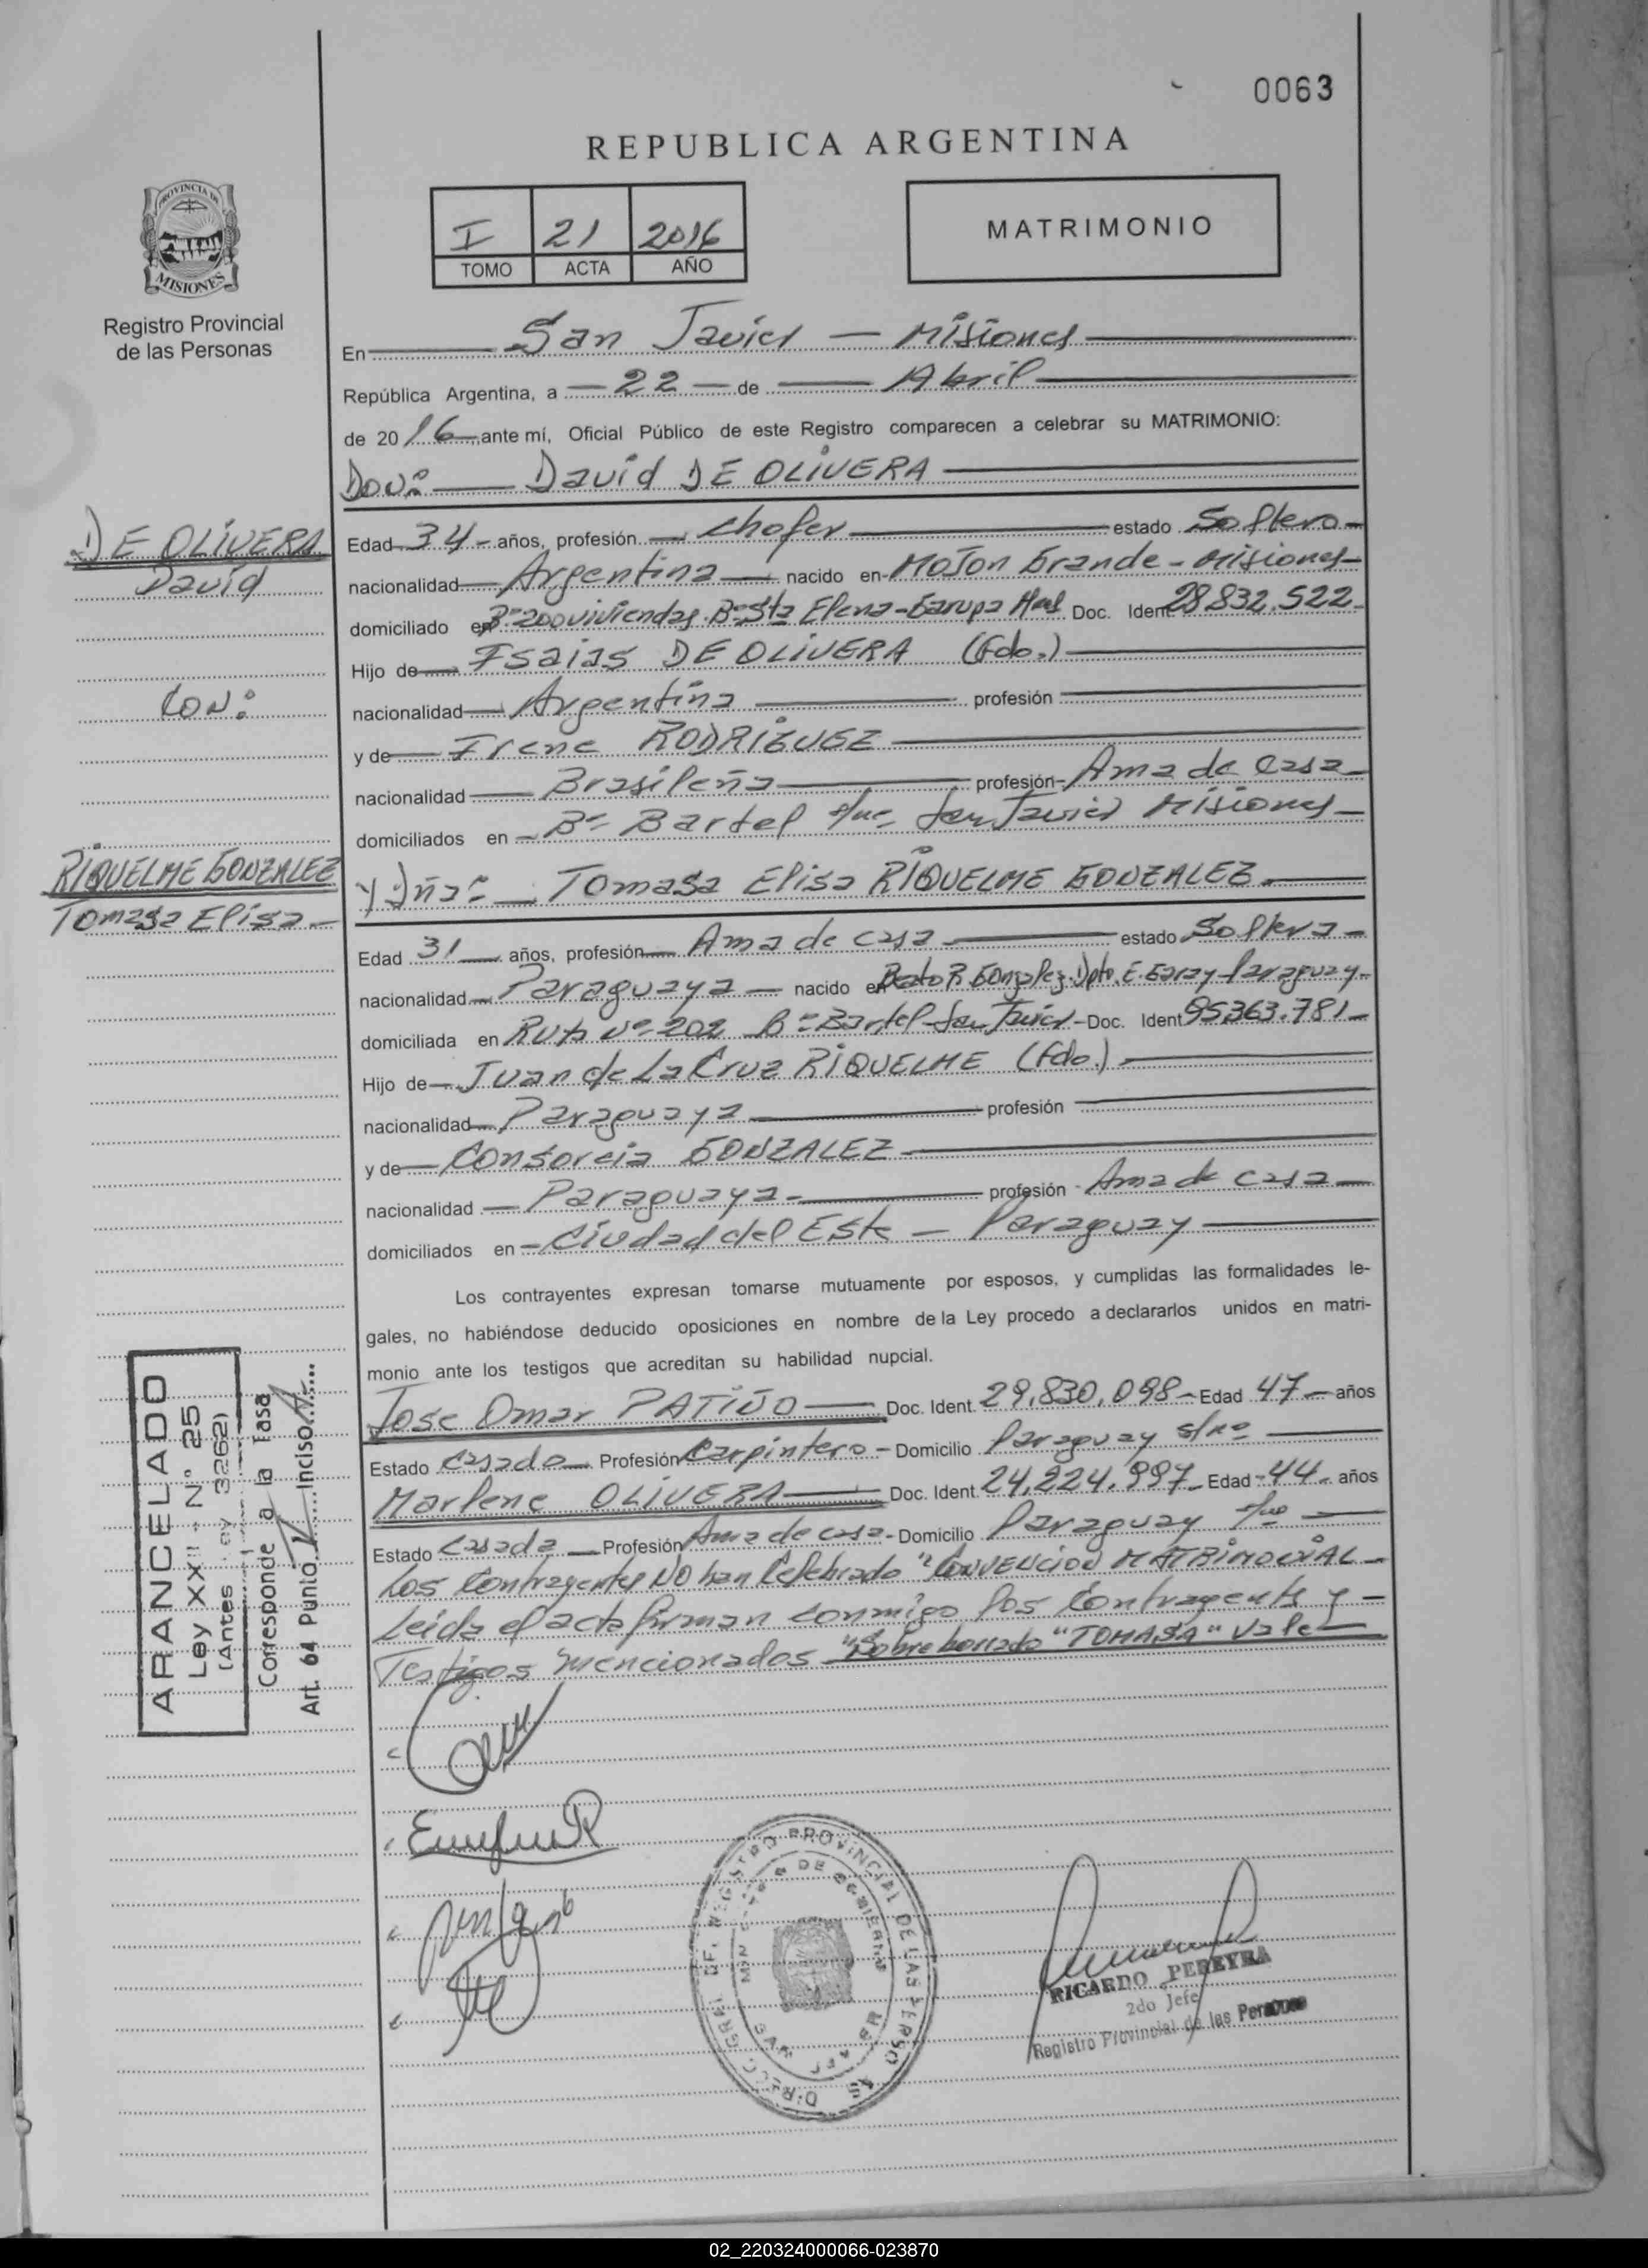 0063
REPUBLICA ARGENTINA
PROVINCIA DE
MISIONES
Registro Provincial
de las Personas
I 21 2016
TOMO ACTA AÑO
MATRIMONIO
En San Javier - Misiones
República Argentina, a 22 de Abril
de 2016, ante mí, Oficial Público de este Registro comparecen a celebrar su MATRIMONIO:
Don: David DE OLIVERA
DE OLIVERA
David
CON:
RIQUELME GONZALEZ
Tomasa Elisa
Edad 34 años, profesión chofer estado Soltero
nacionalidad Argentina nacido en Mojon Grande - Misiones
domiciliado en Bº 200 viviendas Bº Sta Elena - Garupa Mnes Doc. Ident. 28.832.522
Hijo de Isaias DE OLIVERA (Fdo.)
nacionalidad Argentina profesión
y de Irene RODRIGUEZ
nacionalidad Brasileña profesión Ama de casa
domiciliados en Bº Bartel s/nº San Javier Misiones
y Dña: Tomasa Elisa RIQUELME GONZALEZ
Edad 31 años, profesión Ama de casa estado Soltera
nacionalidad Paraguaya nacido en R. Gonzalez. Dpto. E. Paraguay
domiciliada en Ruta Nº 202 Bº Bartel - San Javier - Doc. Ident. 95.363.781
Hijo de Juan de La Cruz RIQUELME (Fdo.)
nacionalidad Paraguaya profesión
y de Consorcia GONZALEZ
nacionalidad Paraguaya profesión Ama de casa
domiciliados en Ciudad del Este - Paraguay
Los contrayentes expresan tomarse mutuamente por esposos, y cumplidas las formalidades le-
gales, no habiéndose deducido oposiciones en nombre de la Ley procedo a declararlos unidos en matri-
monio ante los testigos que acreditan su habilidad nupcial.
Jose Omar PATIÑO Doc. Ident. 29.830.098 Edad 47 años
Estado Casado Profesión Carpintero - Domicilio Paraguay s/nº
Marlene OLIVERA Doc. Ident. 24.224.997 Edad 44 años
Estado Casada Profesión Ama de casa - Domicilio Paraguay s/nº
Los Contrayentes NO han Celebrado "CONVENCION MATRIMONIAL
Leida el acta firman conmigo los Contrayentes y
Testigos mencionados "Sobre borrado "TOMASA" Vale
ARANCELADO
Ley XXII - N.º 25
(Antes Ley 3262)
Corresponde a la Tasa
Art. 64 Punto Inciso
RICARDO PEREYRA
2do Jefe
Registro Provincial de las Personas
02_220324000066-023870